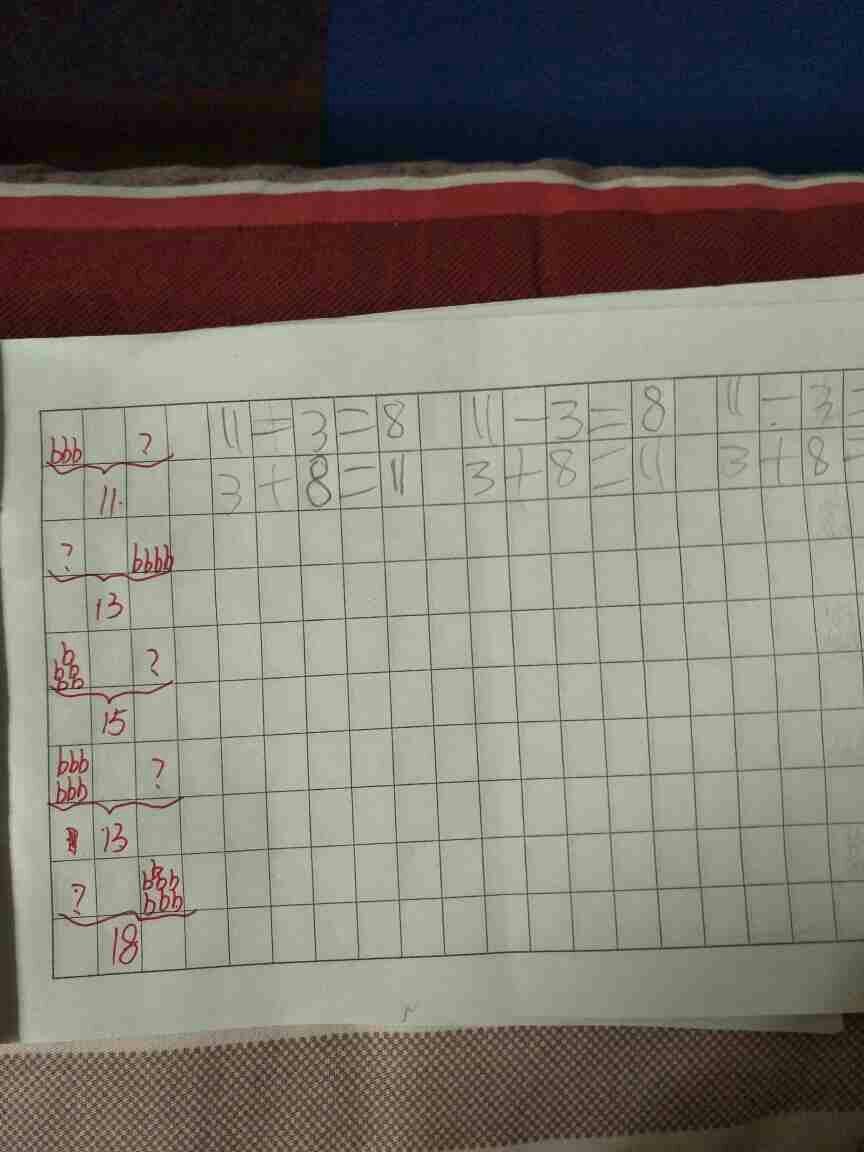 bbb ? 11-3=8 11-3=8 11-3=
11 3+8=11 3+8=11 3+8=
? bbbb
13
b
bb ?
bb
15
bbb ?
bbb
13
? bbbb
bbb
18